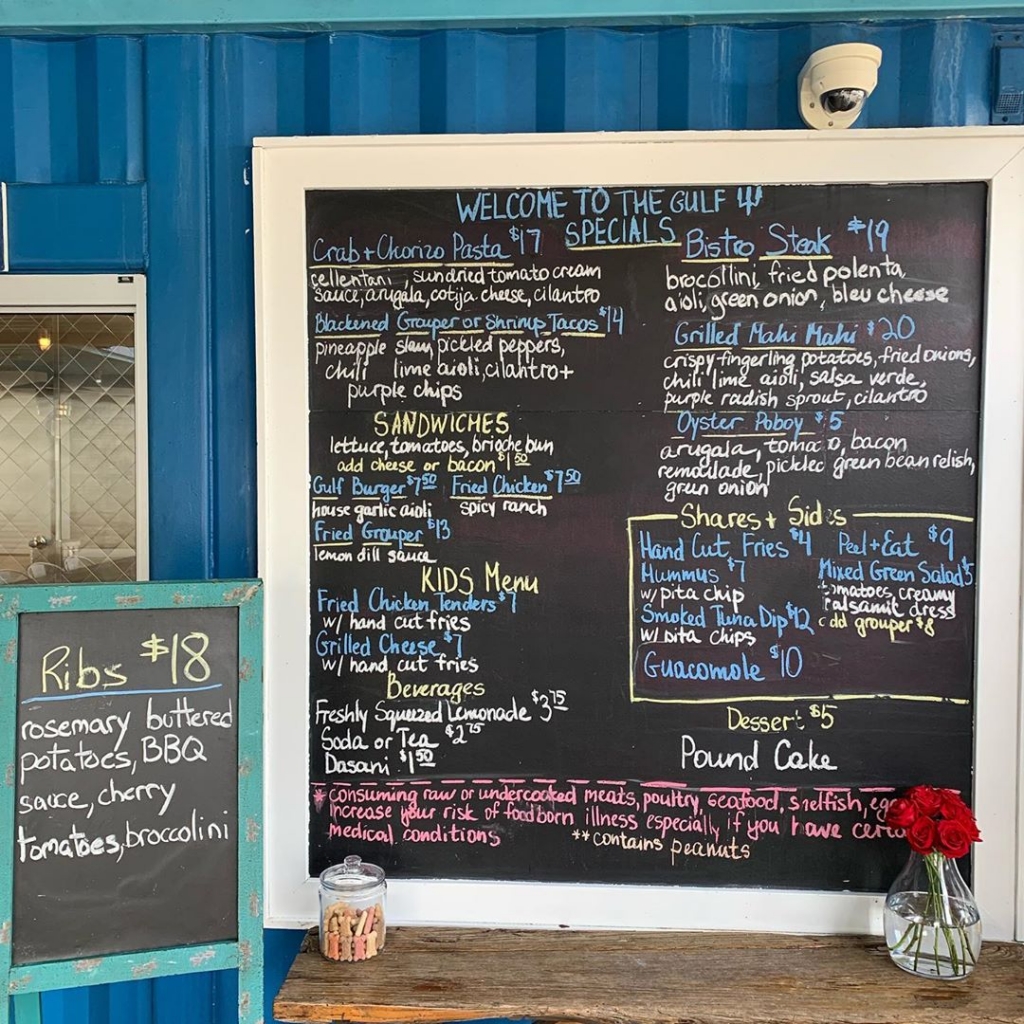 WELCOME TO THE GULF
SPECIALS
Crab+Chorizo Pasta $17
cellentani, sundried tomato cream
sauce, arugala, cotija cheese, cilantro
Blackened Grouper or Shrimp Tacos $14
pineapple slaw, pickled peppers,
chili lime aioli, cilantro+
purple chips
SANDWICHES
lettuce, tomatoes, brioche bun
add cheese or bacon $1.50
Gulf Burger $7.50 Fried Chicken $7.50
house garlic aioli spicy ranch
Fried Grouper $13
lemon dill sauce
KIDS Menu
Fried Chicken Tenders $7
w/ hand cut fries
Grilled Cheese $7
w/ hand cut fries
Beverages
Freshly Squeezed Lemonade $3.75
Soda or Tea $2.75
Dasani $1.50
Bistro Steak $19
brocollini, fried polenta,
aioli, green onion, bleu cheese
Grilled Mahi Mahi $20
crispy fingerling potatoes, fried onions,
chili lime aioli, salsa verde,
purple radish sprout, cilantro
Oyster Poboy $5
arugala, tomao, bacon
remoulade, pickled green bean relish,
green onion
Shares + Sides
Hand Cut Fries $4
Hummus $7
w/ pita chip
Smoked Tuna Dip $12
w/ pita chips
Guacomole $10
Peel+Eat $9
Mixed Green Salad $5
tomatoes creamy
balsamit dress
add grouper $8
Dessert $5
Pound Cake
* consuming raw or undercooked meats, poultry, seafood, shelfish,
increase your risk of foodborn illness especially if you have
medical conditions
**contains peanuts
Ribs $18
rosemary buttered
potatoes, BBQ
sauce, cherry
tomatoes, broccolini